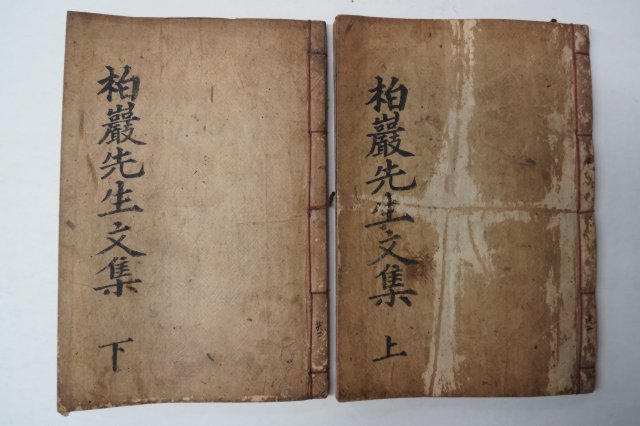 柏巖先生文集
上
柏巖先生文集
下
共二